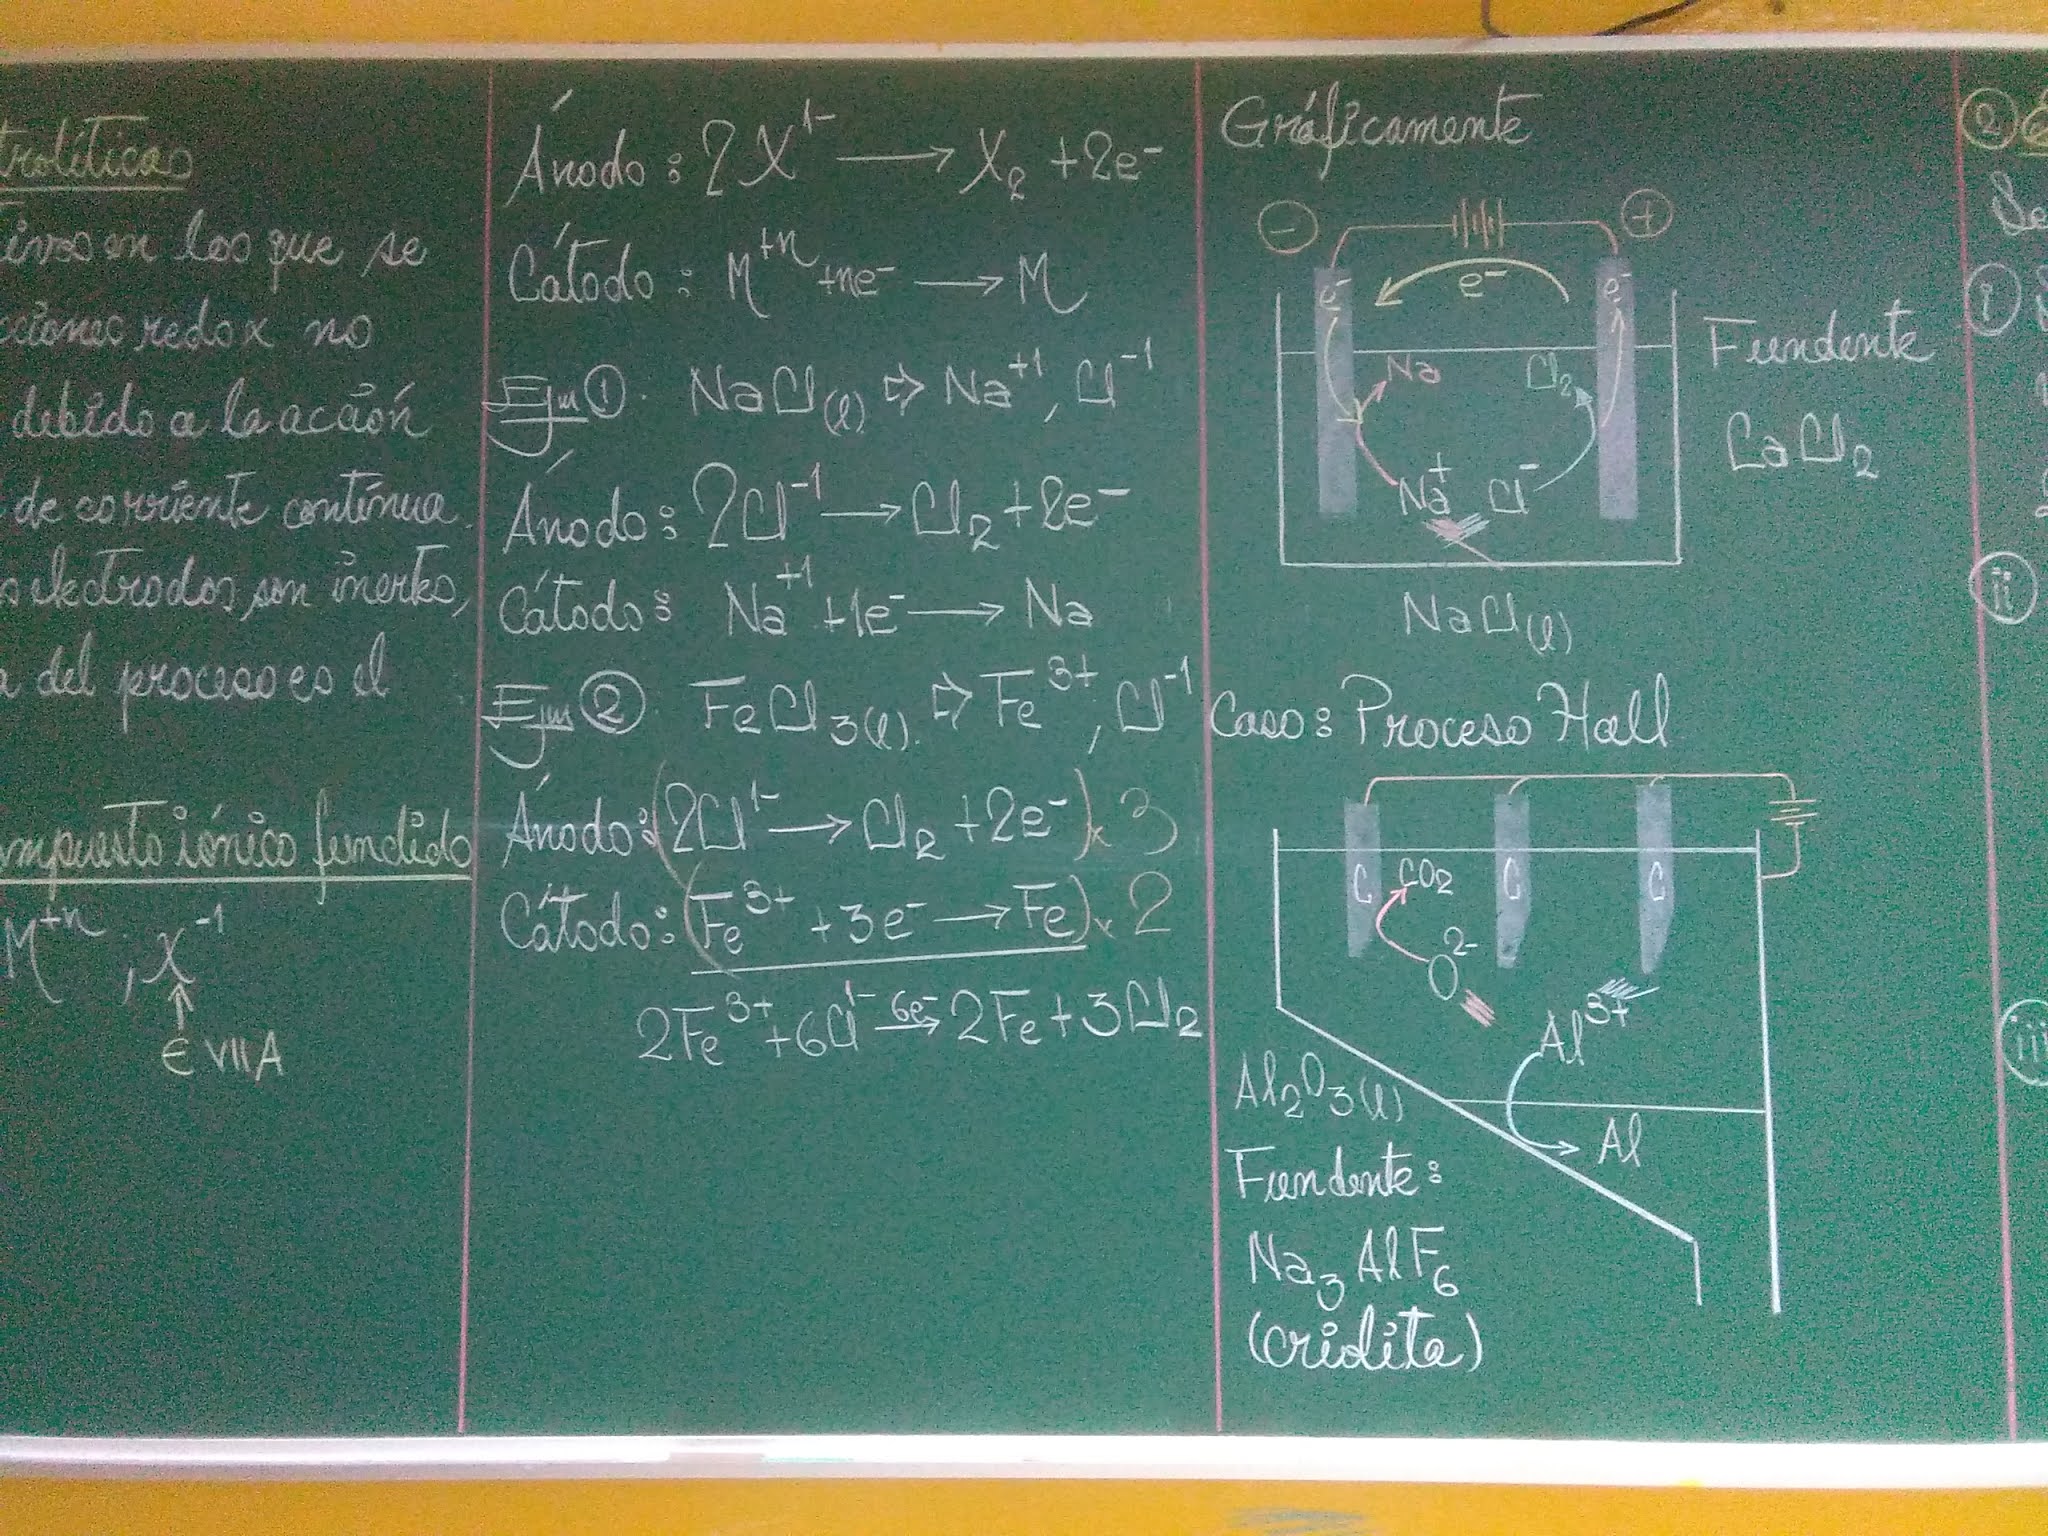 trolíticas
tivos en los que se
cciones redox no
debido a la acción
de corriente contínua.
s electrodos son inertes,
a del proceso es el
mpuesto iónico fundido
M⁺ⁿ, X⁻¹
↑
∈ VIIA
Ánodo: 2X¹⁻ → X₂ + 2e⁻
Cátodo: M⁺ⁿ + ne⁻ → M
Ejm ①. NaCl(l) ⇨ Na⁺¹, Cl⁻¹
Ánodo: 2Cl⁻¹ → Cl₂ + 2e⁻
Cátodo: Na⁺¹ + 1e⁻ → Na
Ejm ②. FeCl₃(l). ⇨ Fe³⁺, Cl⁻¹
Ánodo: (2Cl¹⁻ → Cl₂ + 2e⁻) x 3
Cátodo: (Fe³⁺ + 3e⁻ → Fe) x 2
2Fe³⁺ + 6Cl¹⁻ 6e⁻→ 2Fe + 3Cl₂
Gráficamente
- +
e⁻ e⁻ e⁻
Na Cl₂
Na⁺ Cl⁻
NaCl(l)
Fundente
CaCl₂
Caso: Proceso Hall
C CO₂ C C
O²⁻
Al³⁺
Al
Al₂O₃(l)
Fundente:
Na₃AlF₆
(criolita)
②
Se
i
ii
iii